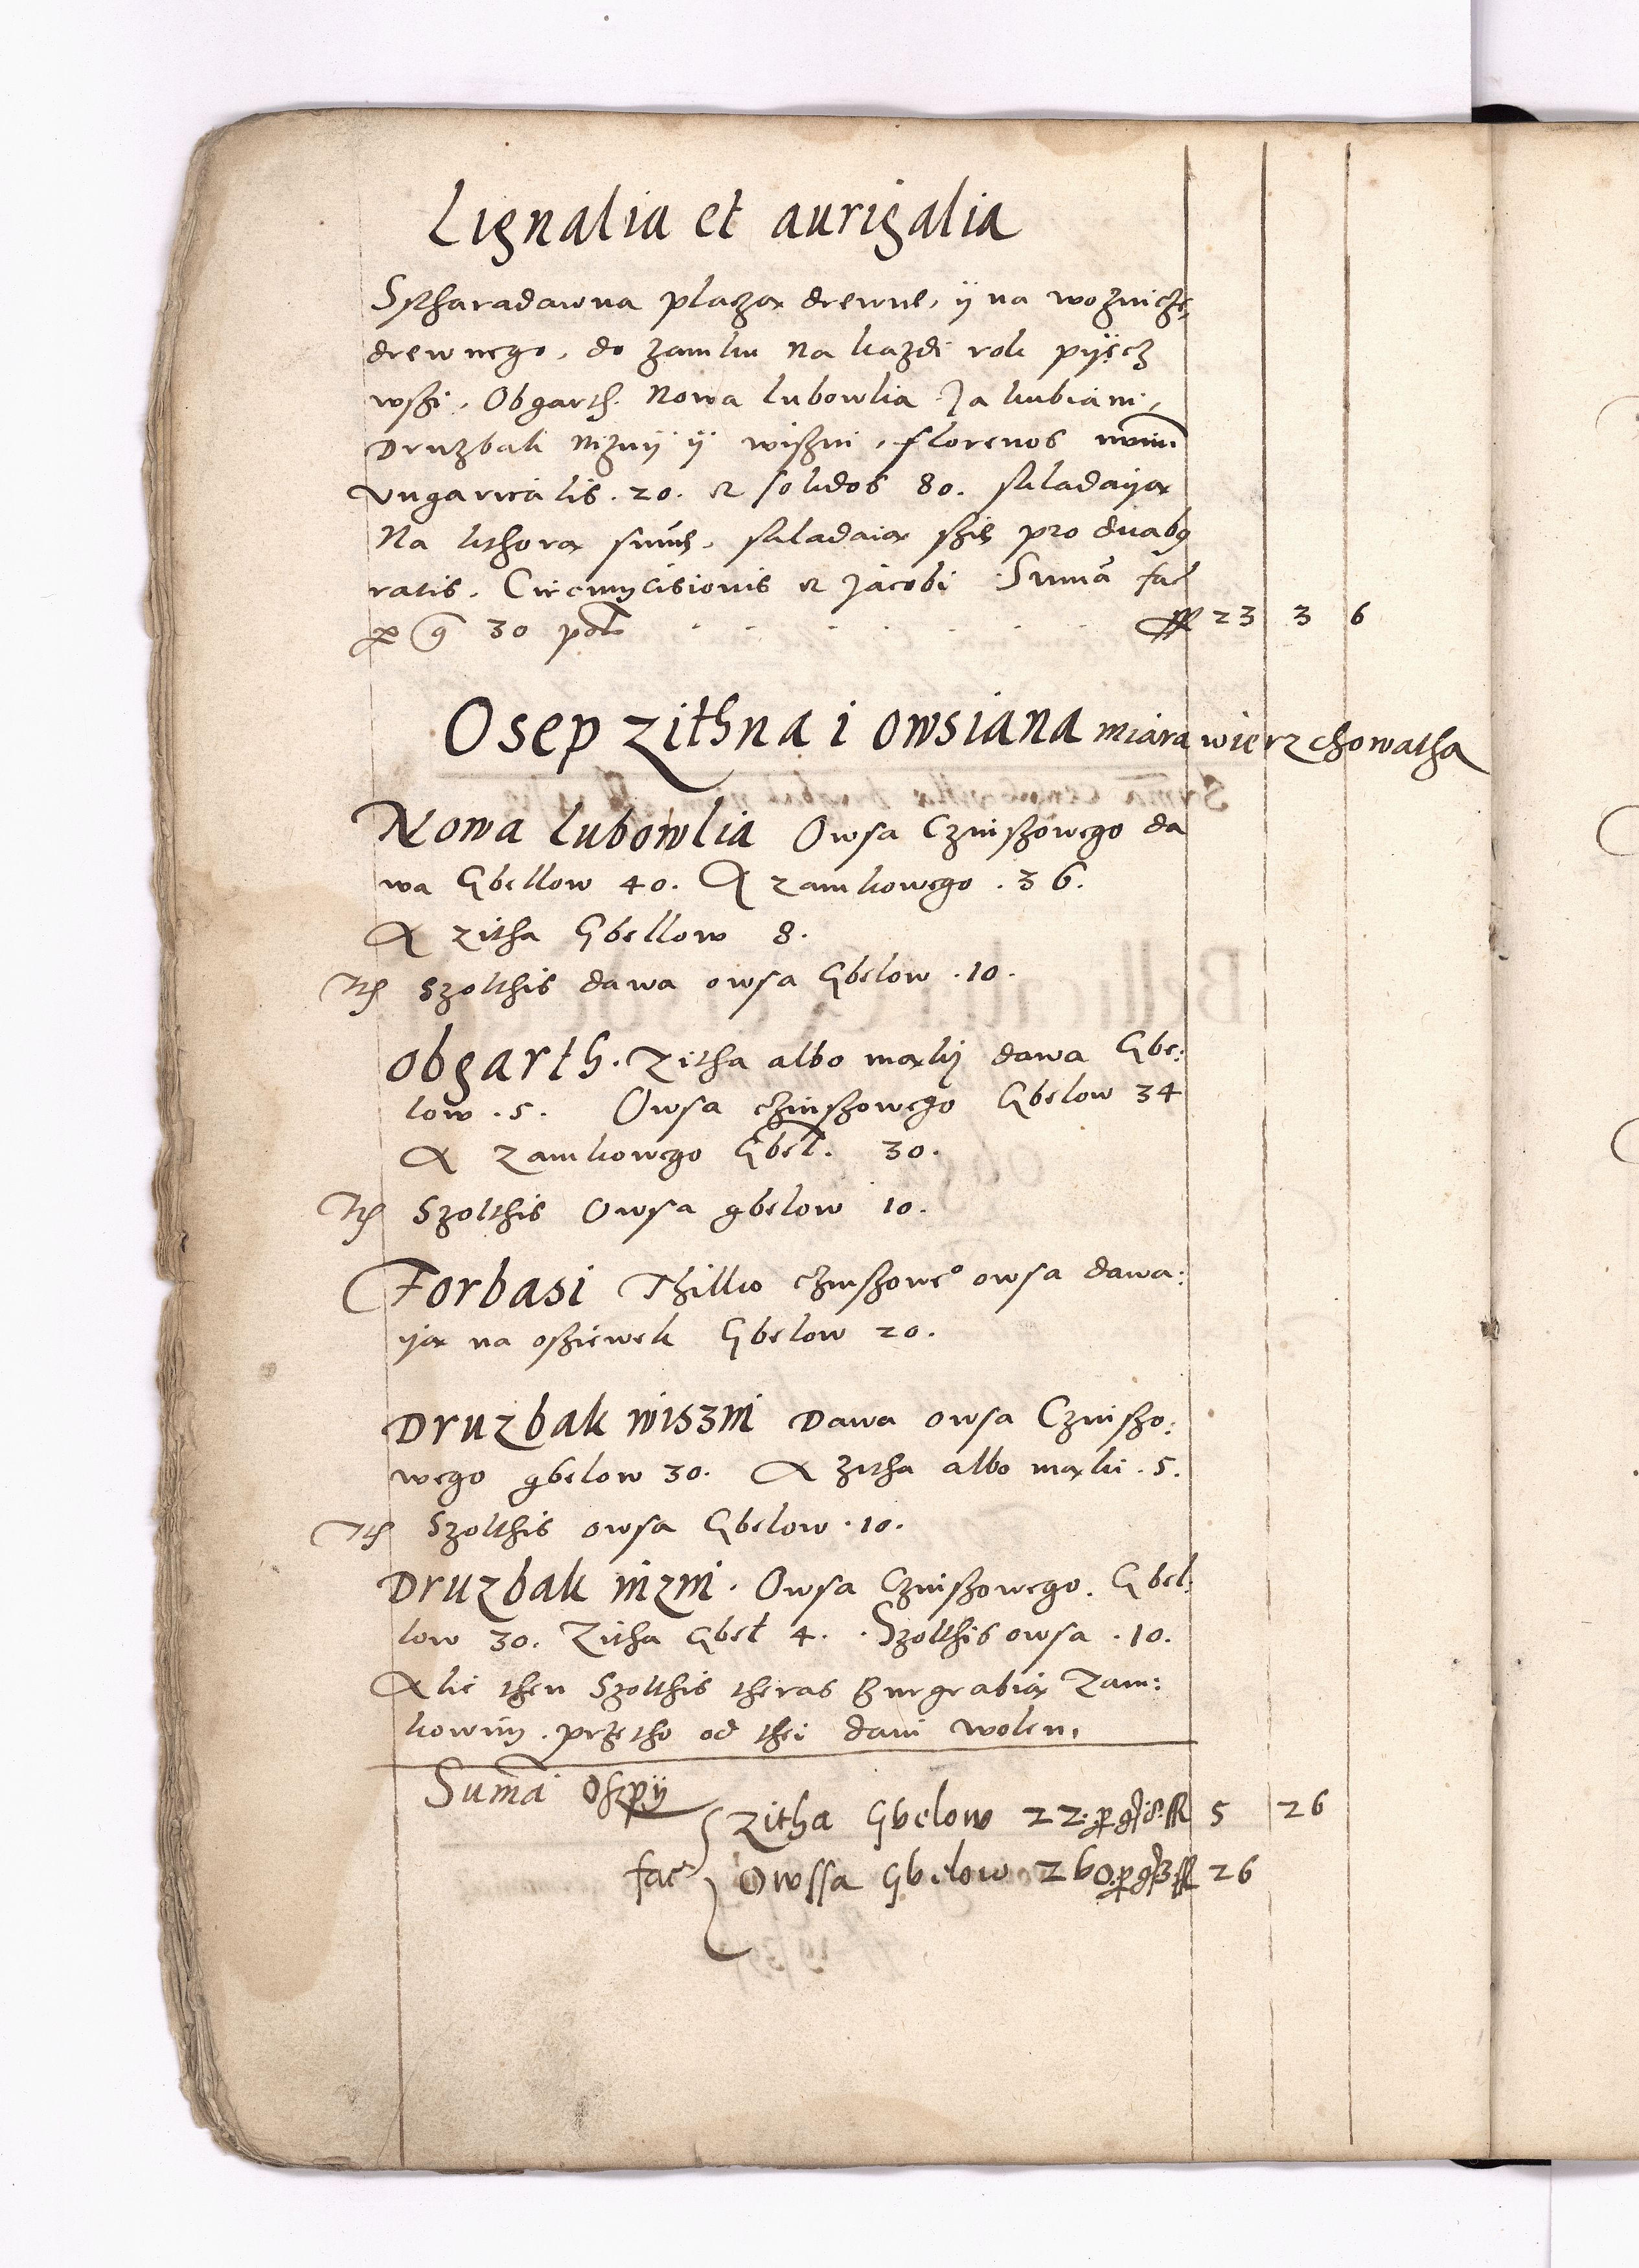 Lignalia et aurigalia
Sstharadawna placzą drewne, ÿ na woźnicze,
drewnego, do zamku na kazdi rok pÿęcz
wszi, Obgarth. Nowa lubowlia Jakubiani,
Druzbaki niznÿ ÿ wiszni, florenos
vngaricalis. 20. et solidos 80. skladaÿą
Na kthorą summę, skladaią szię pro duabus
ratis, Circumcisionis et Jacobi Suma facit
per g 30 polo . . . . . . . ff 23 3 6
Osep zithna i owsiana miara wierzchowatha
Nowa lubowlia Owsa Czinszowego da
wa Gbellow 40. A zamkowego . 36.
A zitha Gbellow 8.
Ith Szolthis dawa owsa Gbelow .10.
Obgarth. Zitha albo mąkÿ dawa Gbe:
low .5. Owsa czinszowego Gbelow 34
A zamkowego Gbel. 30.
Ith Szolthis Owsa gbelow 10.
Forbasi Thilko czinszoweo owsa dawa:
ÿą na osziewek Gbelow 20.
Druzbak wiszni Dawa owsa Czinszo:
wego gbelow 30. A zitha albo mąki .5.
Ith Szolthis owsa Gbelow .10.
Druzbak nizni. Owsa Czinszowego. Gbel:
low 30. Zitha Gbel 4. Szolthis owsa .10.
Ale then Szolthis theras Burgrabią Zam:
kowim, przetho od thei dani wolen.
Suma Oszpÿ
zitha Gbelow 22. per g 8. ff 5 26
facit Owssa Gbelow 260. per g 3 ff 26